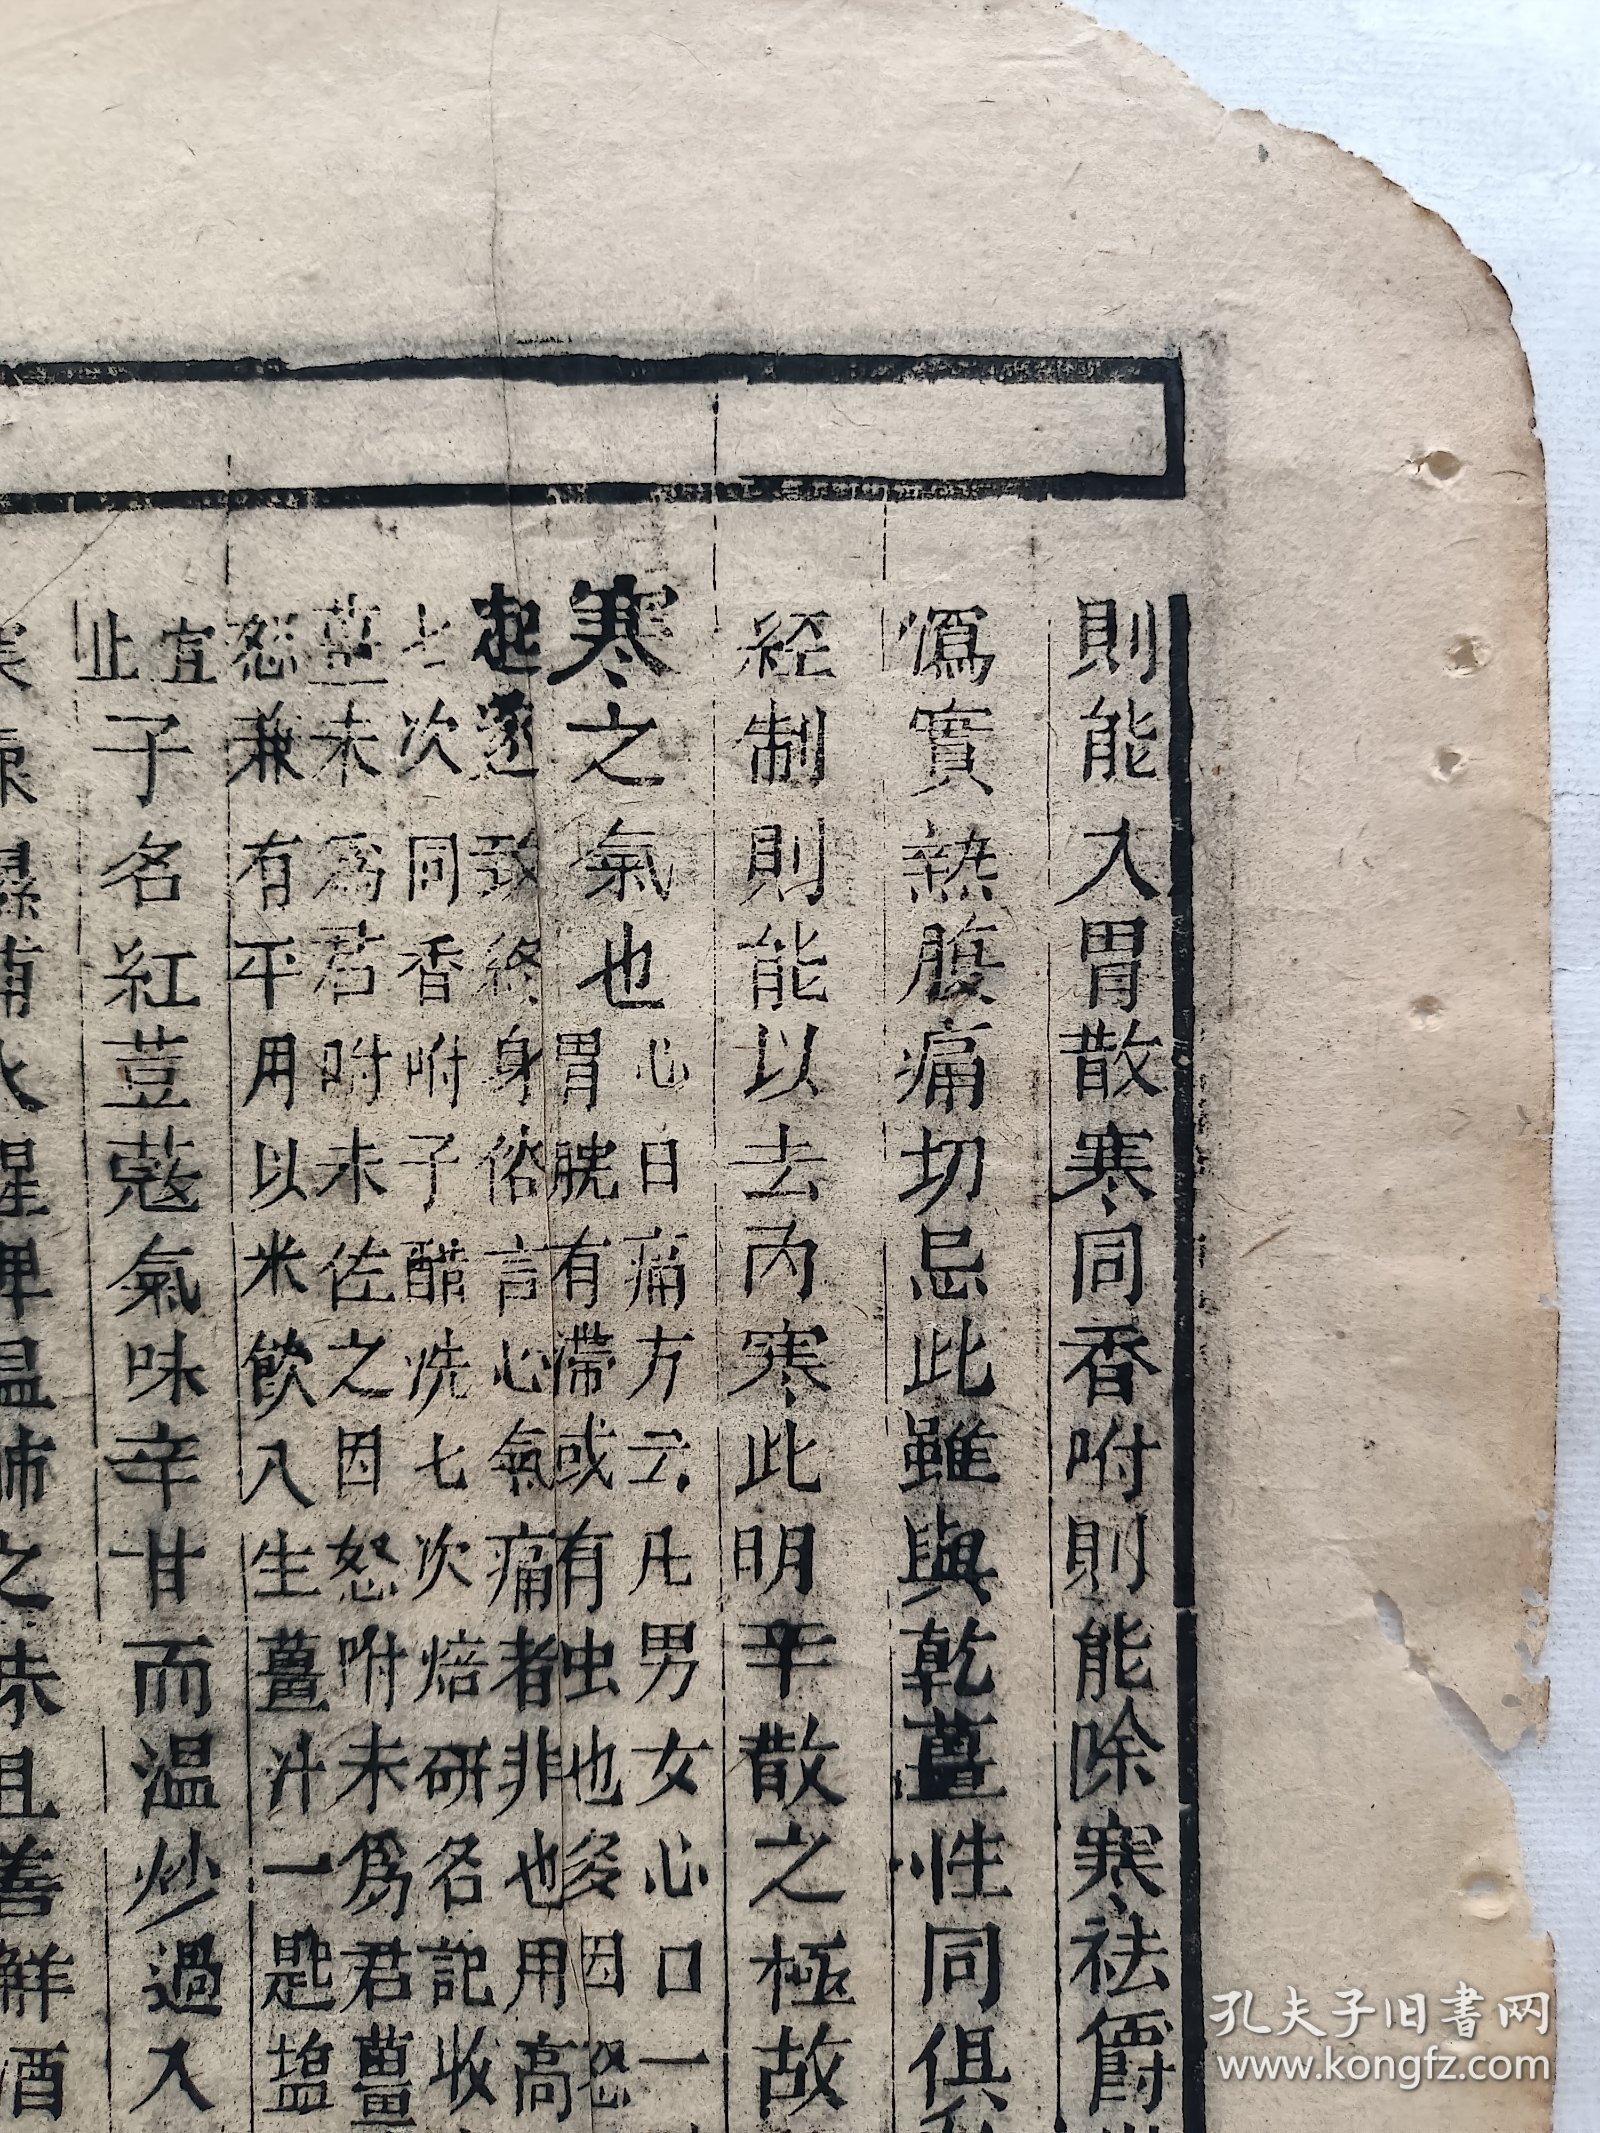 則能入胃散寒同香附則能除寒祛欝
偽實熱腹痛切忌此雖與乾薑性同俱
經制則能以去內寒此明辛散之極故
寒之氣也
心口痛方云凡男女心口一
胃脘有滯或有虫也多因怒
起遂致終身俗言心氣痛者非也用高
七次同香附子醋洗七次焙研各記收
薑末為君附末佐之因怒附末為君薑
怒兼有平用以米飲入生薑汁一匙塩
止
宜
子名紅荳蔻氣味辛甘而温炒過入
醒脾温肺之味且善解酒
孔夫子旧書网
www.kongfz.com